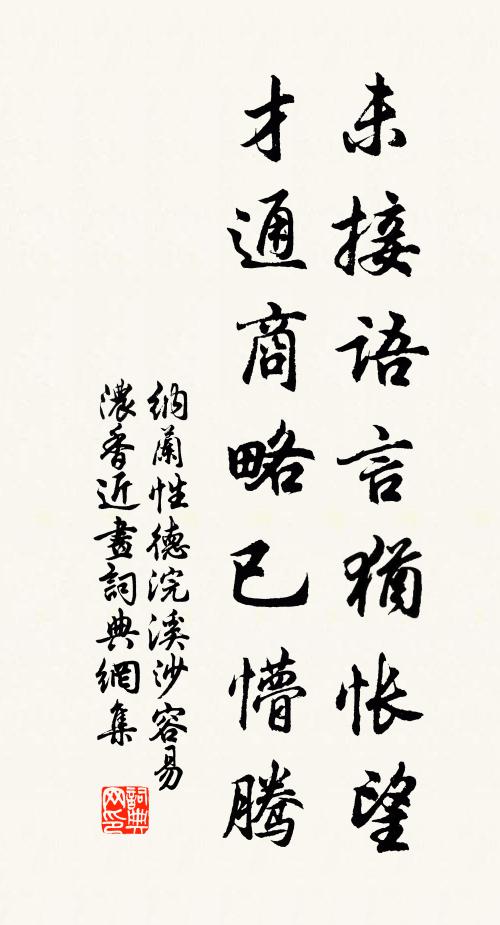 未接語言猶悵望
才通商略已懵騰
納蘭性德浣溪沙容易
濃香近畫詞典網集
詞典
网印